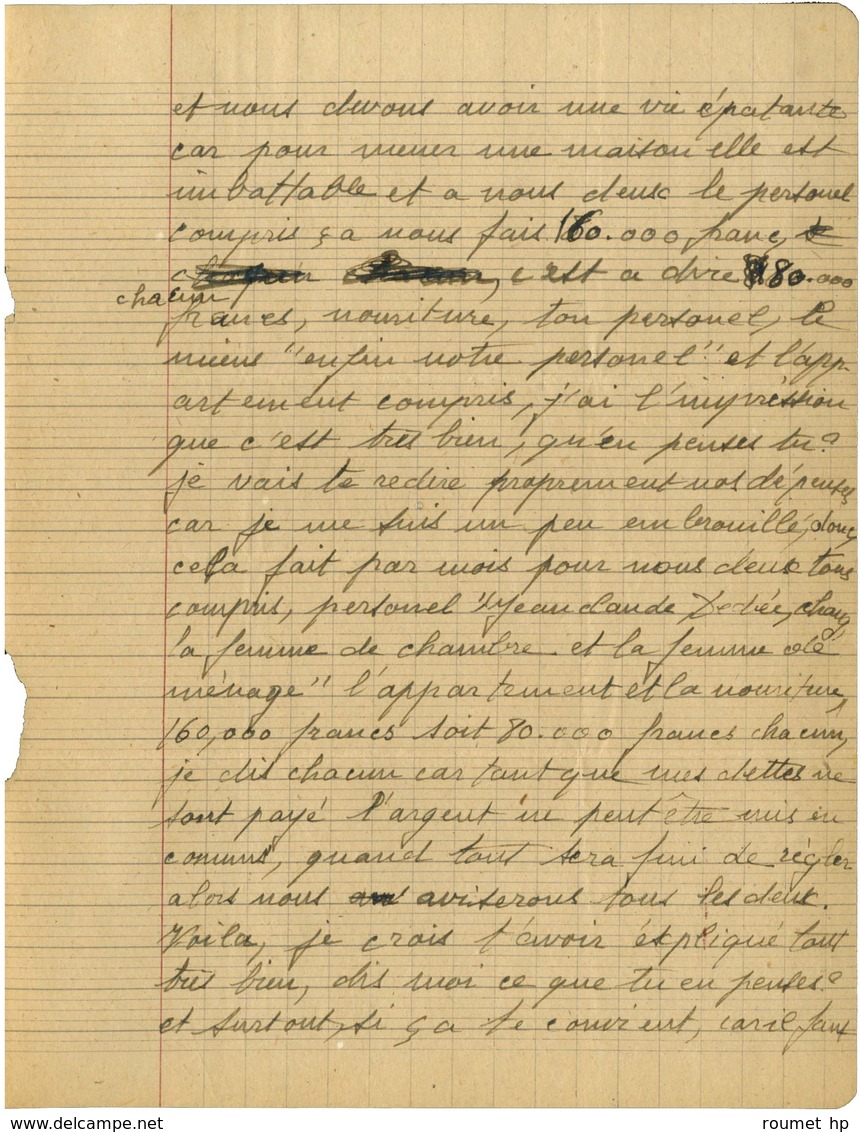 et nous devons avoir une vie épatante
car pour mener une maison elle est
imbattable et a nous deux le personel
compris ça nous fais 160.000 franc,
c'est a dire 80.000
chacun
francs, nouriture, ton personel, le
miens "enfin notre personel" et l'app-
artement compris, j'ai l'impréssion
que c'est très bien, qu'en penses tu?
je vais te redire proprement nos dépenses
car je me suis un peu embrouillé, donc,
cela fait par mois pour nous deux tous
compris, personel "Jean claude Dedée, chang,
la femme de chambre et la femme de
ménage" l'appartement et la nouriture,
160,000 francs soit 80.000 francs chacun,
je dis chacun car tant que mes dettes ne
sont payé l'argent ne peut être mis en
comuns, quand tout sera fini de régler
alors nous aviserons tous les deux.
Voila, je crois t'avoir éxpliqué tout
très bien, dis moi ce que tu en penses?
et surtout, si ça te convient, car il faut
roumet hp